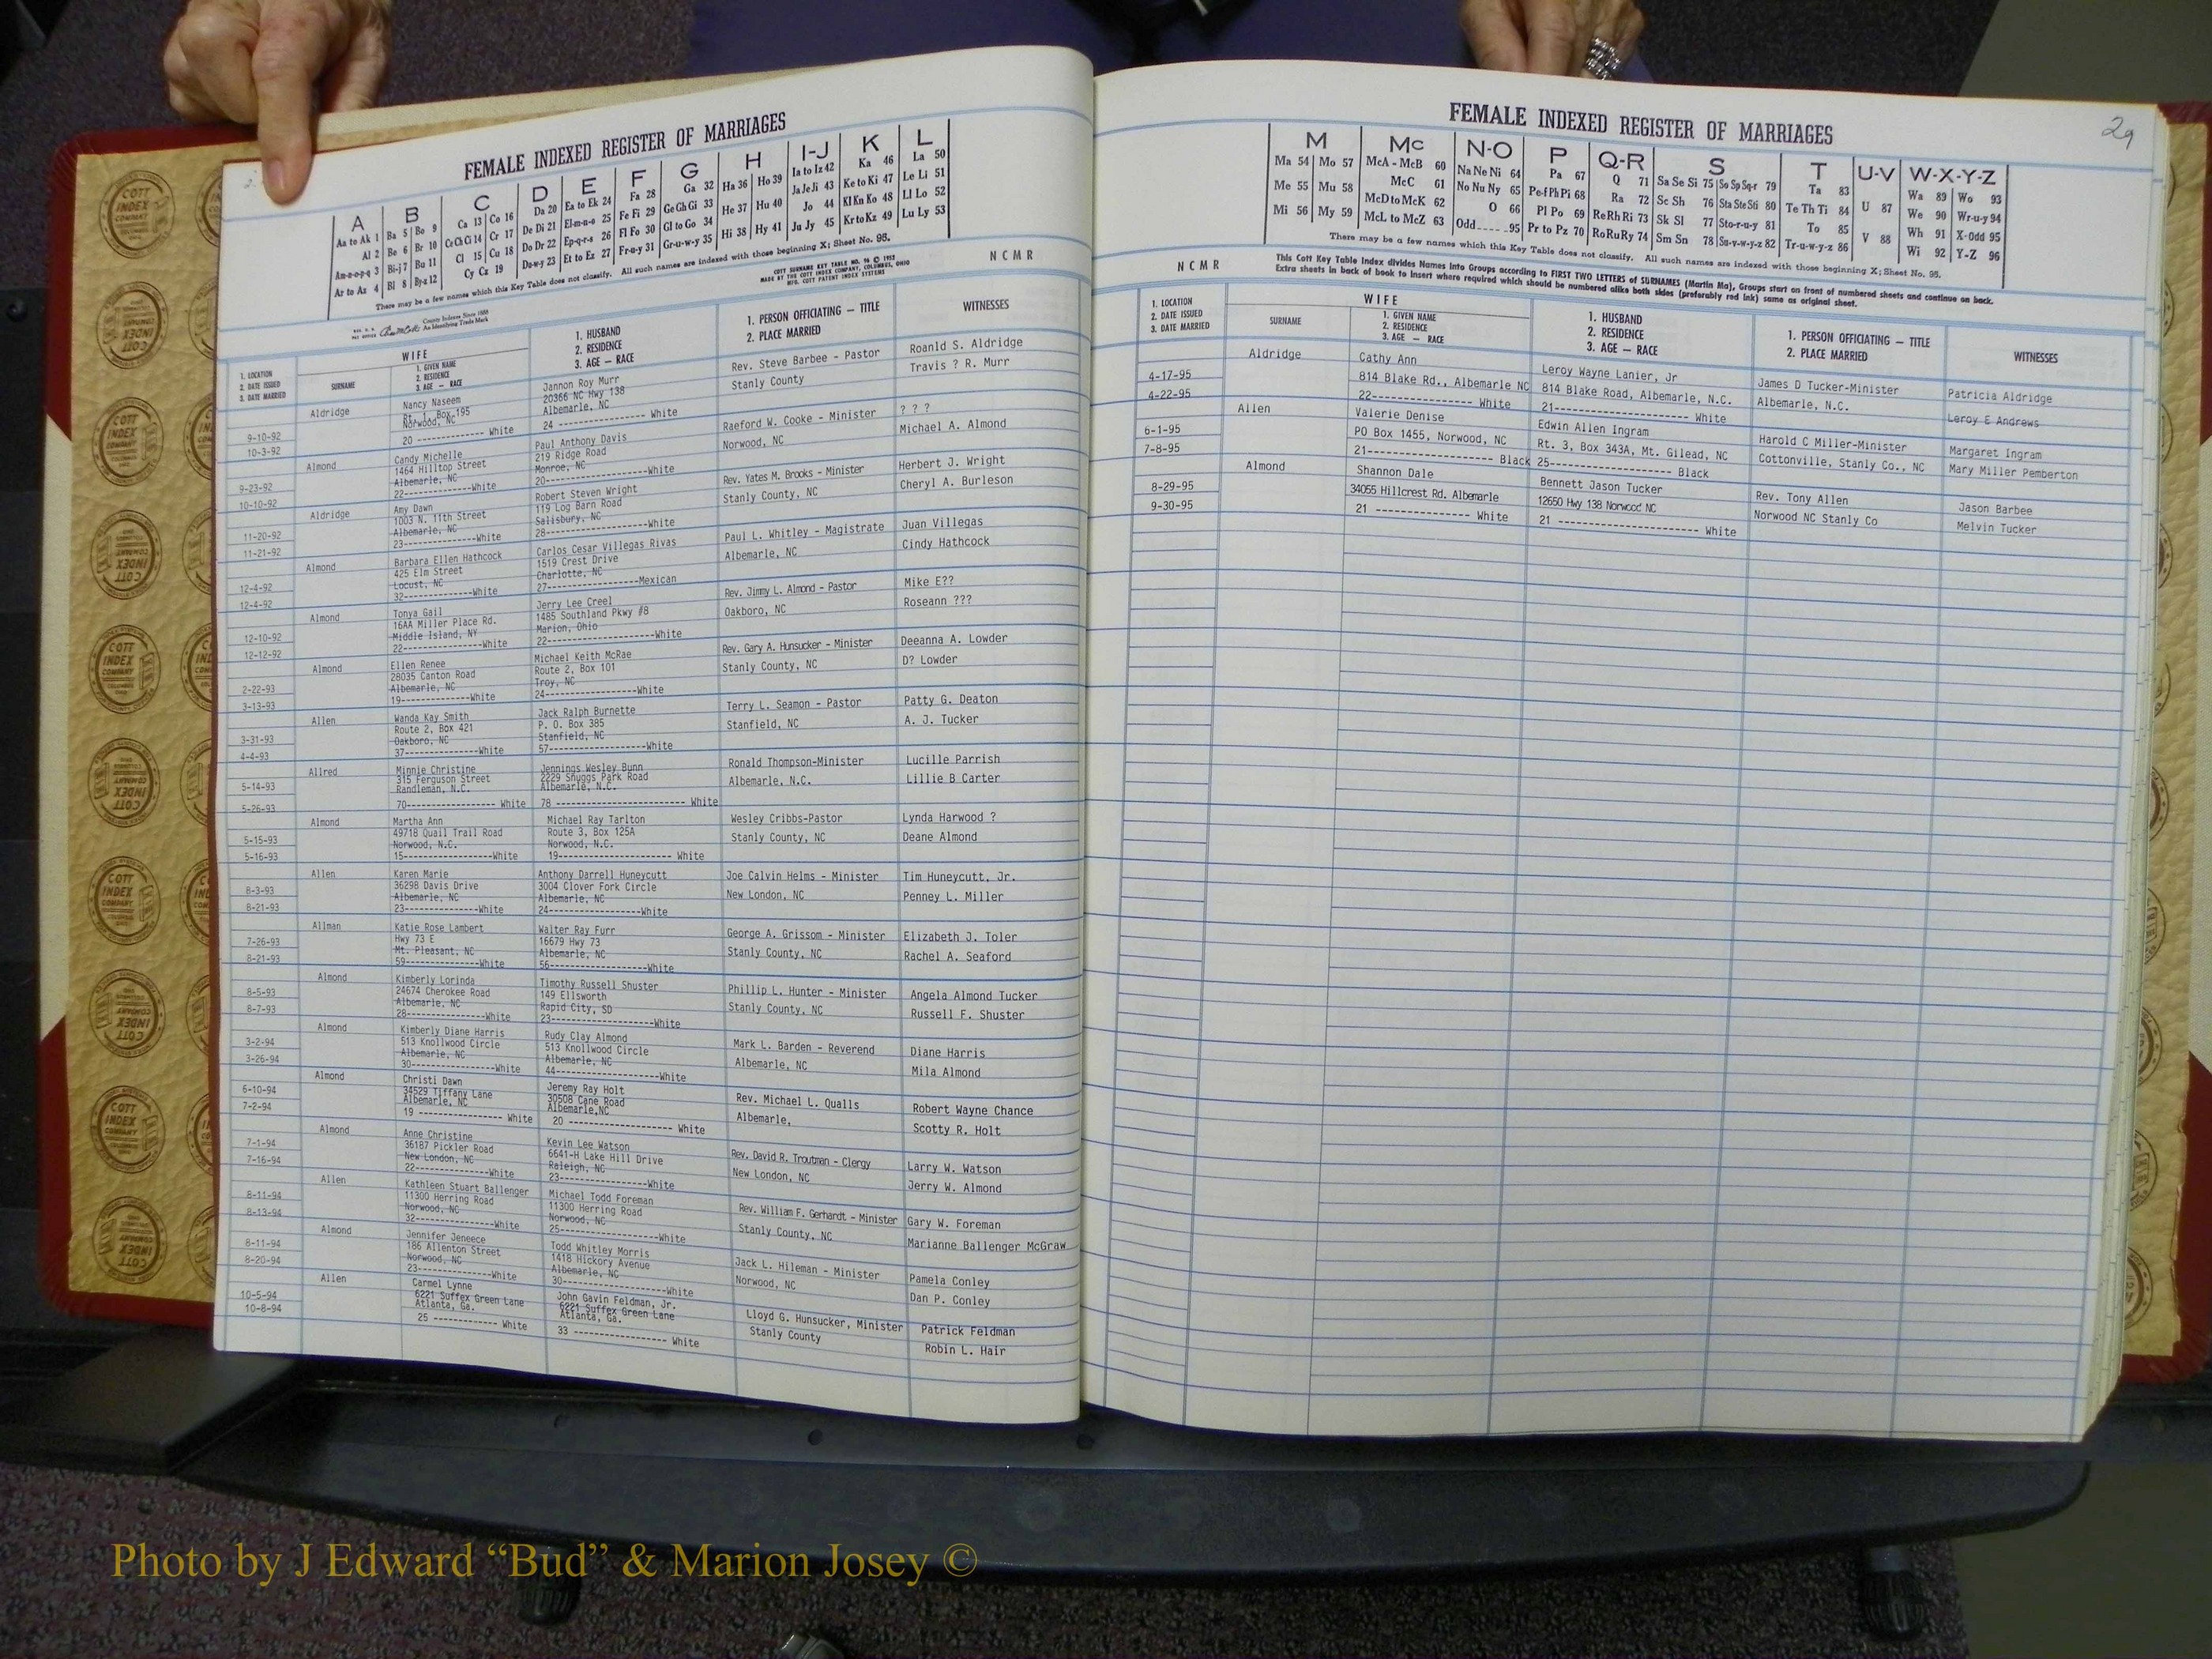 FEMALE INDEXED REGISTER OF MARRIAGES
A B C D E F G H I-J K L
Aa to Ak 1 Ba 5 Bo 9 Ca 13 Co 16 Da 20 Ea to Ek 24 Fa 28 Ga 32 Ha 36 Ho 39 Ia to Iz 42 Ka 46 La 50
Al 2 Be 6 Br 10 Ce Ch Ci 14 Cr 17 De Di 21 El-m-n-o 25 Fe Fi 29 Ge Gh Gi 33 He 37 Hu 40 Ja Je Ji 43 Ke to Ki 47 Le Li 51
Am-n-o-p-q 3 Bi-j 7 Bu 11 Cl 15 Cu 18 Do Dr 22 Ep-q-r-s 26 Fl Fo 30 Gl to Go 34 Hi 38 Hy 41 Jo 44 Kl Kn Ko 48 Ll Lo 52
Ar to Az 4 Bl 8 By-z 12 Cy Cz 19 Du-w-y 23 Et to Ez 27 Fr-u-y 31 Gr-u-w-y 35 Ju Jy 45 Kr to Kz 49 Lu Ly 53
There may be a few names which this Key Table does not classify. All such names are indexed with those beginning X; Sheet No. 95.
COTT SURNAME KEY TABLE NO. 96 © 1952
MADE BY THE COTT INDEX COMPANY, COLUMBUS, OHIO
MFG. COTT PATENT INDEX SYSTEMS
NCMR
County Indexes Since 1888
An Identifying Trade Mark
1. LOCATION
2. DATE ISSUED
3. DATE MARRIED
WIFE
SURNAME
1. GIVEN NAME
2. RESIDENCE
3. AGE — RACE
1. HUSBAND
2. RESIDENCE
3. AGE — RACE
1. PERSON OFFICIATING — TITLE
2. PLACE MARRIED
WITNESSES
9-10-92
10-3-92
Aldridge
Nancy Naseem
Rt. 1, Box 195
Norwood, NC
20 ------------ White
Jannon Roy Murr
20366 NC Hwy 138
Albemarle, NC
24 ------------ White
Rev. Steve Barbee - Pastor
Stanly County
Roanld S. Aldridge
Travis ? R. Murr
9-23-92
10-10-92
Almond
Candy Michelle
1464 Hilltop Street
Albemarle, NC
22-------------White
Paul Anthony Davis
219 Ridge Road
Monroe, NC
20-------------White
Raeford W. Cooke - Minister
Norwood, NC
? ? ?
Michael A. Almond
11-20-92
11-21-92
Aldridge
Amy Dawn
1003 N. 11th Street
Albemarle, NC
23-------------White
Robert Steven Wright
119 Log Barn Road
Salisbury, NC
28-------------White
Rev. Yates M. Brooks - Minister
Stanly County, NC
Herbert J. Wright
Cheryl A. Burleson
12-4-92
12-4-92
Almond
Barbara Ellen Hathcock
425 Elm Street
Locust, NC
32-------------White
Carlos Cesar Villegas Rivas
1519 Crest Drive
Charlotte, NC
27-------------Mexican
Paul L. Whitley - Magistrate
Albemarle, NC
Juan Villegas
Cindy Hathcock
12-10-92
12-12-92
Almond
Tonya Gail
16AA Miller Place Rd.
Middle Island, NY
22-------------White
Jerry Lee Creel
1485 Southland Pkwy #8
Marion, Ohio
22-------------White
Rev. Jimmy L. Almond - Pastor
Oakboro, NC
Mike E??
Roseann ???
2-22-93
3-13-93
Almond
Ellen Renee
28035 Canton Road
Albemarle, NC
19-------------White
Michael Keith McRae
Route 2, Box 101
Troy, NC
24-------------White
Rev. Gary A. Hunsucker - Minister
Stanly County, NC
Deeanna A. Lowder
D? Lowder
3-31-93
4-4-93
Allen
Wanda Kay Smith
Route 2, Box 421
Oakboro, NC
37-------------White
Jack Ralph Burnette
P. O. Box 385
Stanfield, NC
57-------------White
Terry L. Seamon - Pastor
Stanfield, NC
Patty G. Deaton
A. J. Tucker
5-14-93
5-26-93
Allred
Minnie Christine
315 Ferguson Street
Randleman, N.C.
70------------------ White
Jennings Wesley Bunn
2229 Snuggs Park Road
Albemarle, N.C.
78 -------------------- White
Ronald Thompson-Minister
Albemarle, N.C.
Lucille Parrish
Lillie B Carter
5-15-93
5-16-93
Almond
Martha Ann
49718 Quail Trail Road
Norwood, N.C.
15-----------------White
Michael Ray Tarlton
Route 3, Box 125A
Norwood, N.C.
19------------------ White
Wesley Cribbs-Pastor
Stanly County, NC
Lynda Harwood ?
Deane Almond
8-3-93
8-21-93
Allen
Karen Marie
36298 Davis Drive
Albemarle, NC
23-------------White
Anthony Darrell Huneycutt
3004 Clover Fork Circle
Albemarle, NC
24-------------White
Joe Calvin Helms - Minister
New London, NC
Tim Huneycutt, Jr.
Penney L. Miller
7-26-93
8-21-93
Allman
Katie Rose Lambert
Hwy 73 E
Mt. Pleasant, NC
59-------------White
Walter Ray Furr
16679 Hwy 73
Albemarle, NC
56-------------White
George A. Grissom - Minister
Stanly County, NC
Elizabeth J. Toler
Rachel A. Seaford
8-5-93
8-7-93
Almond
Kimberly Lorinda
24674 Cherokee Road
Albemarle, NC
28-------------White
Timothy Russell Shuster
149 Ellsworth
Rapid City, SD
23-------------White
Phillip L. Hunter - Minister
Stanly County, NC
Angela Almond Tucker
Russell F. Shuster
3-2-94
3-26-94
Almond
Kimberly Diane Harris
513 Knollwood Circle
Albemarle, NC
30-------------White
Rudy Clay Almond
513 Knollwood Circle
Albemarle, NC
44-------------White
Mark L. Barden - Reverend
Albemarle, NC
Diane Harris
Mila Almond
6-10-94
7-2-94
Almond
Christi Dawn
34529 Tiffany Lane
Albemarle, NC
19 ---------------- White
Jeremy Ray Holt
30508 Cane Road
Albemarle,NC
20 ------------------ White
Rev. Michael L. Qualls
Albemarle,
Robert Wayne Chance
Scotty R. Holt
7-1-94
7-16-94
Almond
Anne Christine
36187 Pickler Road
New London, NC
22-------------White
Kevin Lee Watson
6641-H Lake Hill Drive
Raleigh, NC
23-------------White
Rev. David R. Troutman - Clergy
New London, NC
Larry W. Watson
Jerry W. Almond
8-11-94
8-13-94
Allen
Kathleen Stuart Ballenger
11300 Herring Road
Norwood, NC
32-------------White
Michael Todd Foreman
11300 Herring Road
Norwood, NC
25-------------White
Rev. William F. Gerhardt - Minister
Stanly County, NC
Gary W. Foreman
Marianne Ballenger McGraw
8-11-94
8-20-94
Almond
Jennifer Jeneece
186 Allenton Street
Norwood, NC
23-------------White
Todd Whitley Morris
1418 Hickory Avenue
Albemarle, NC
30-------------White
Jack L. Hileman - Minister
Norwood, NC
Pamela Conley
Dan P. Conley
10-5-94
10-8-94
Allen
Carmel Lynne
6221 Suffex Green Lane
Atlanta, Ga.
25 ------------- White
John Gavin Feldman, Jr.
6221 Suffex Green Lane
Atlanta, Ga.
33 --------------- White
Lloyd G. Hunsucker, Minister
Stanly County
Patrick Feldman
Robin L. Hair
29
FEMALE INDEXED REGISTER OF MARRIAGES
M Mc N-O P Q-R S T U-V W-X-Y-Z
Ma 54 Mo 57 McA - McB 60 Na Ne Ni 64 Pa 67 Q 71 Sa Se Si 75 So Sp Sq-r 79 Ta 83 U 87 Wa 89 Wo 93
Me 55 Mu 58 McC 61 No Nu Ny 65 Pe-f Ph Pi 68 Ra 72 Sc Sh 76 Sta Ste Sti 80 Te Th Ti 84 V 88 We 90 Wr-u-y 94
Mi 56 My 59 McD to McK 62 O 66 Pl Po 69 Re Rh Ri 73 Sk Sl 77 Sto-r-u-y 81 To 85 Wh 91 X-Odd 95
McL to McZ 63 Odd 95 Pr to Pz 70 Ro Ru Ry 74 Sm Sn 78 Su-v-w-y-z 82 Tr-u-w-y-z 86 Wi 92 Y-Z 96
There may be a few names which this Key Table does not classify. All such names are indexed with those beginning X; Sheet No. 95.
NCMR
This Cott Key Table Index divides Names into Groups according to FIRST TWO LETTERS of SURNAMES (Martin Ma), Groups start on front of numbered sheets and continue on back.
Extra sheets in back of book to insert where required which should be numbered alike both sides (preferably red ink) same as original sheet.
1. LOCATION
2. DATE ISSUED
3. DATE MARRIED
WIFE
SURNAME
1. GIVEN NAME
2. RESIDENCE
3. AGE — RACE
1. HUSBAND
2. RESIDENCE
3. AGE — RACE
1. PERSON OFFICIATING — TITLE
2. PLACE MARRIED
WITNESSES
4-17-95
4-22-95
Aldridge
Cathy Ann
814 Blake Rd., Albemarle NC
22---------------- White
Leroy Wayne Lanier, Jr
814 Blake Road, Albemarle, N.C.
21------------------- White
James D Tucker-Minister
Albemarle, N.C.
Patricia Aldridge
Leroy E Andrews
6-1-95
7-8-95
Allen
Valerie Denise
PO Box 1455, Norwood, NC
21------------------- Black
Edwin Allen Ingram
Rt. 3, Box 343A, Mt. Gilead, NC
25---------------- Black
Harold C Miller-Minister
Cottonville, Stanly Co., NC
Margaret Ingram
Mary Miller Pemberton
8-29-95
9-30-95
Almond
Shannon Dale
34055 Hillcrest Rd. Albemarle
21 --------------- White
Bennett Jason Tucker
12650 Hwy 138 Norwood NC
21 ------------------ White
Rev. Tony Allen
Norwood NC Stanly Co
Jason Barbee
Melvin Tucker
COTT
INDEX
COMPANY
Photo by J Edward “Bud” & Marion Josey ©